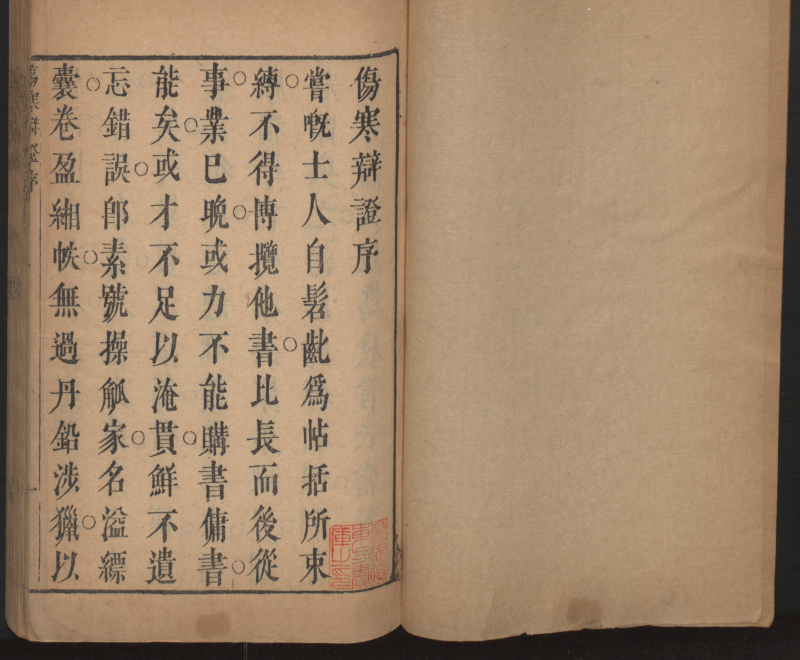 傷寒辯證序
嘗嘅士人自髫齔爲帖括所束
縛不得博攬他書比長而後從
事業已晚或力不能購書傭書
能矣或才不足以淹貫鮮不遺
忘錯誤卽素號操觚家名溢縹
囊卷盈緗帙無過丹鉛涉獵以
傷寒辯證序